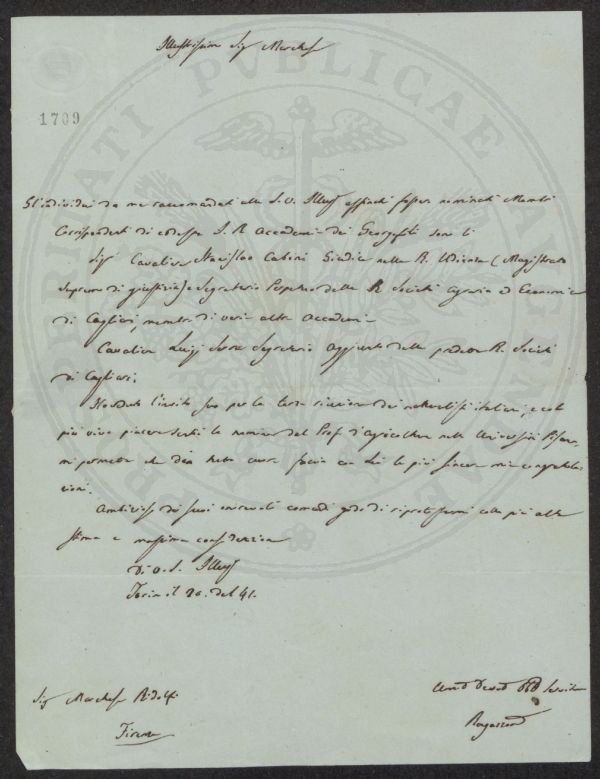 Illustrissimo Sig Marchese
1709
Gl'individui da me raccomandati alla S.V. Illust affinché fossero nominati Membri
Corrispondenti di codesta I. R Accademia dei Georgofili sono li
Sig Cavaliere Stanislao Caboni Giudice nella R. Udienza (Magistrato
Supremo di giustizia) e Segretario Perpetuo della R Società Agraria ed Economica
di Cagliari, membro di varie altre Accademie
Cavaliere Luigi Serra Segretario Aggiunto della predetta R. Società
di Cagliari.
l'invito suo per la terza riunione dei naturalisti italiani, e col
più vivo piacere sentii la nomina del Prof d'agricoltura nella Università Pisana,
mi permetta che di tutto cuore faccia con Lei le più sincere mie congratula-
zioni.
Ambizioso dei suoi onorevoli comandi godo di riprotestarmi colla più alta
stima e massima considerazione
Di V.S. Illust
Torino il 20. del 41.
Sig Marchese Ridolfi
Firenze
Servitore
PROSPERITATI PVBLICAE AVGENDAE